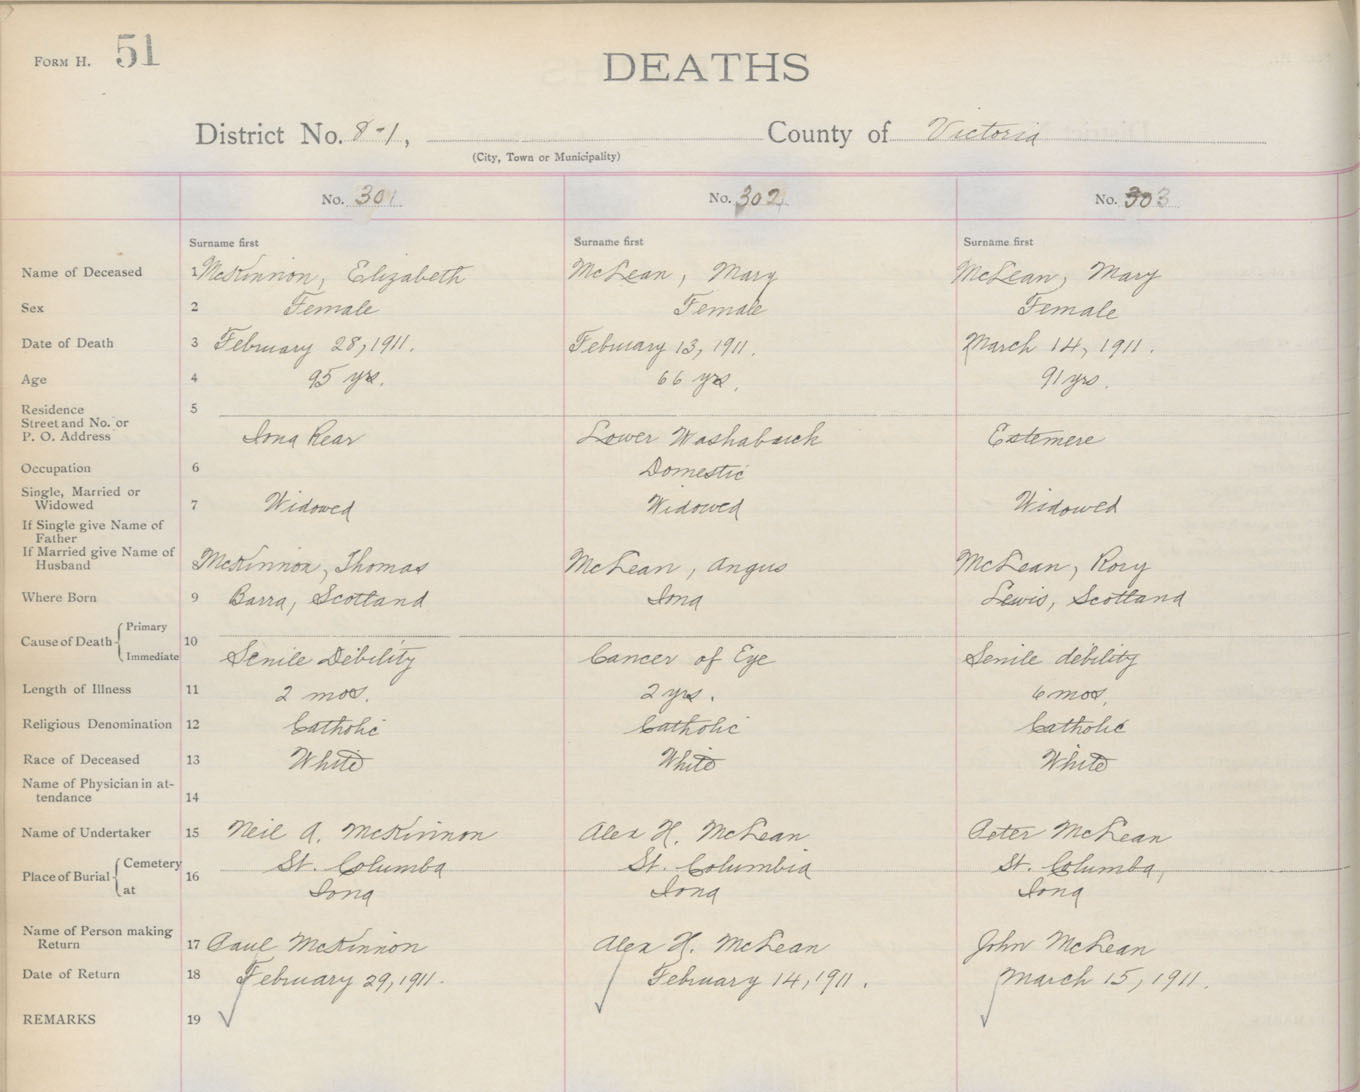 FORM H. 51
DEATHS
District No. 8-1, County of Victoria
(City, Town or Municipality)
No. 301 No. 302 No. 303
Surname first Surname first Surname first
Name of Deceased 1 McKinnon, Elizabeth McLean, Mary McLean, Mary
Sex 2 Female Female Female
Date of Death 3 February 28, 1911. February 13, 1911. March 14, 1911.
Age 4 95 yrs. 66 yrs. 91 yrs.
Residence 5
Street and No. or
P. O. Address Iona Rear Lower Washabuck Estemere
Occupation 6 Domestic
Single, Married or
Widowed 7 Widowed Widowed Widowed
If Single give Name of
Father
If Married give Name of
Husband 8 McKinnon, Thomas McLean, Angus McLean, Rory
Where Born 9 Barra, Scotland Iona Lewis, Scotland
Cause of Death Primary 10
Immediate Senile Debility Cancer of Eye Senile debility
Length of Illness 11 2 mos. 2 yrs. 6 mos.
Religious Denomination 12 Catholic Catholic Catholic
Race of Deceased 13 White White White
Name of Physician in at-
tendance 14
Name of Undertaker 15 Neil A. McKinnon Alex H. McLean Peter McLean
Place of Burial Cemetery 16 St. Columba St. Columbia St. Columba,
at Iona Iona Iona
Name of Person making
Return 17 Paul McKinnon Alex H. McLean John McLean
Date of Return 18 February 29, 1911. February 14, 1911. March 15, 1911.
REMARKS 19